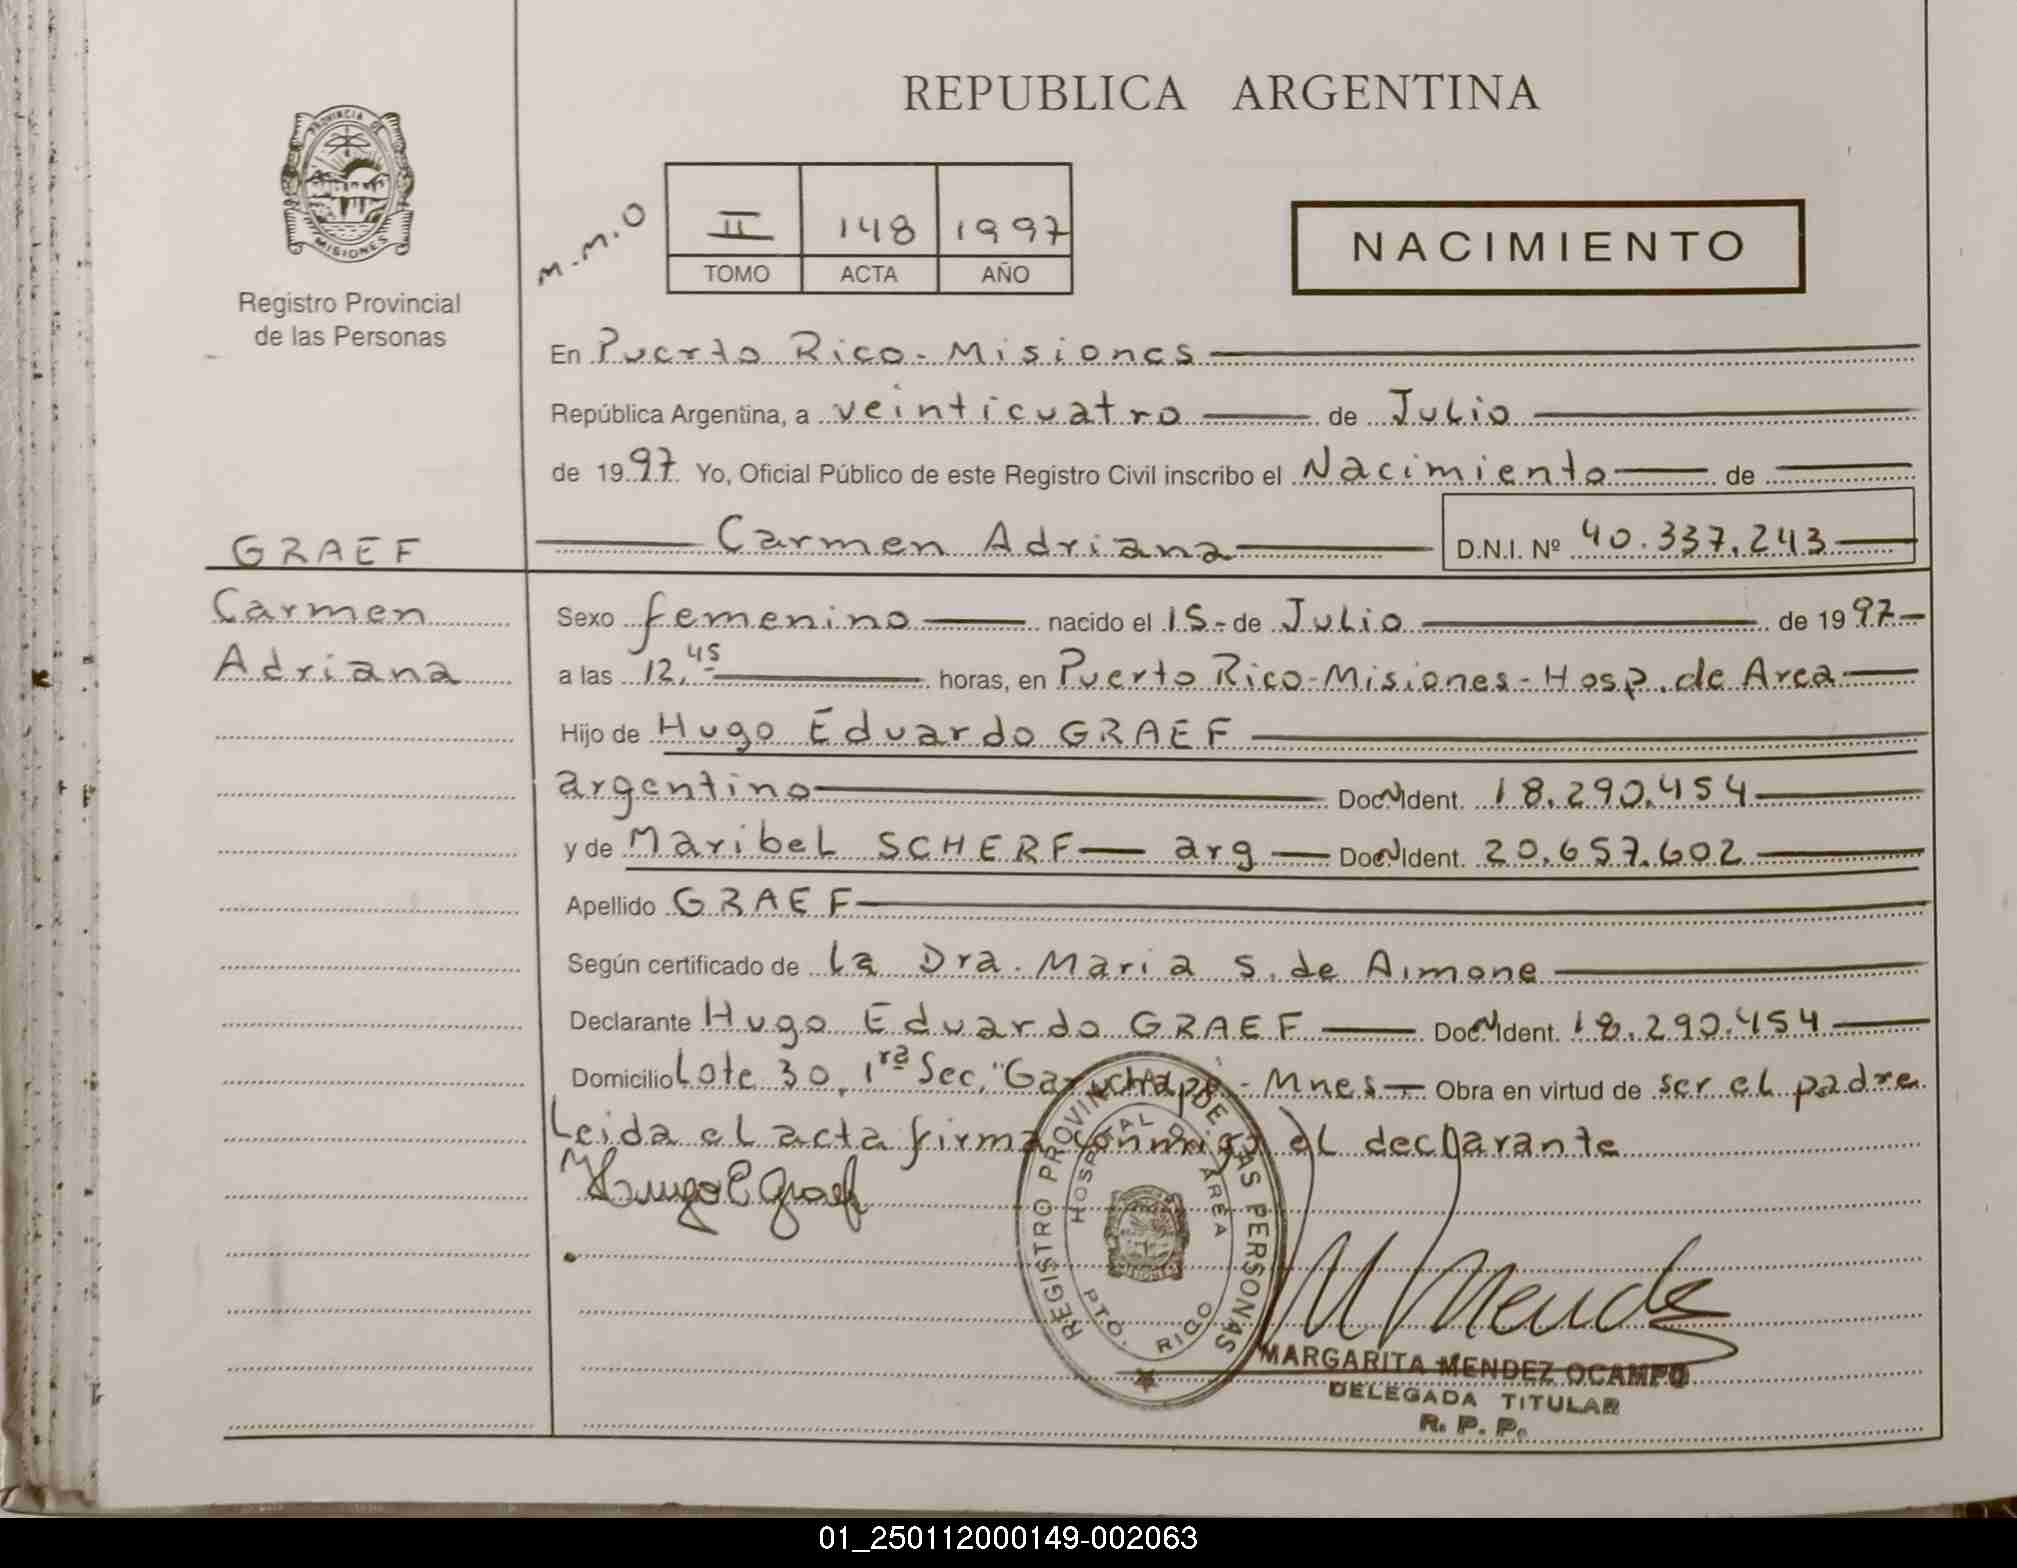 REPUBLICA ARGENTINA
PROVINCIA DE
MISIONES
Registro Provincial
de las Personas
M.M.O
II 148 1997
TOMO ACTA AÑO
NACIMIENTO
En Puerto Rico - Misiones
República Argentina, a veinticuatro de Julio
de 1997 Yo, Oficial Público de este Registro Civil inscribo el Nacimiento de
GRAEF
Carmen Adriana D.N.I. Nº 40.337.243
Carmen
Adriana
Sexo femenino nacido el 15 - de Julio de 1997
a las 12,45 horas, en Puerto Rico - Misiones - Hosp. de Area
Hijo de Hugo Eduardo GRAEF
argentino Doc N Ident. 18.290.454
y de Maribel SCHERF arg Doc N Ident. 20.657.602
Apellido GRAEF
Según certificado de la Dra. Maria S. de Aimone
Declarante Hugo Eduardo GRAEF Doc N Ident. 18.290.454
Domicilio Lote 30, 1ra Sec. "Garuchapé - Mnes Obra en virtud de ser el padre
Leida el acta firma conmigo el declarante
Hugo E Graef
REGISTRO PROVINCIAL DE LAS PERSONAS
HOSPITAL DE AREA
PTO. RICO
M Mendez
MARGARITA MENDEZ OCAMPO
DELEGADA TITULAR
R. P. P.
01_250112000149-002063